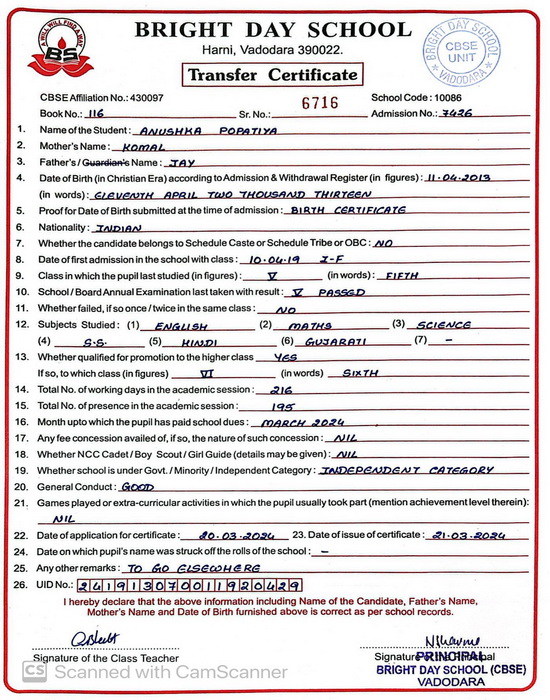 A WILL WILL FIND A WAY
BS
BRIGHT DAY SCHOOL
Harni, Vadodara 390022.
Transfer Certificate
BRIGHT DAY SCHOOL
CBSE
UNIT
VADODARA
CBSE Affiliation No.: 430097
School Code : 10086
Book No.: 116
Sr. No.: 6716
Admission No.: 7426
1. Name of the Student : ANUSHKA POPATIYA
2. Mother's Name : KOMAL
3. Father's / Guardian's Name : JAY
4. Date of Birth (in Christian Era) according to Admission & Withdrawal Register (in figures) : 11-04-2013
(in words) : ELEVENTH APRIL TWO THOUSAND THIRTEEN
5. Proof for Date of Birth submitted at the time of admission : BIRTH CERTIFICATE
6. Nationality : INDIAN
7. Whether the candidate belongs to Schedule Caste or Schedule Tribe or OBC : NO
8. Date of first admission in the school with class : 10-04-19 I-F
9. Class in which the pupil last studied (in figures) : V (in words) : FIFTH
10. School / Board Annual Examination last taken with result : V PASSED
11. Whether failed, if so once / twice in the same class : NO
12. Subjects Studied : (1) ENGLISH (2) MATHS (3) SCIENCE
(4) S.S. (5) HINDI (6) GUJARATI (7) -
13. Whether qualified for promotion to the higher class YES
If so, to which class (in figures) VI (in words) SIXTH
14. Total No. of working days in the academic session : 216
15. Total No. of presence in the academic session : 195
16. Month upto which the pupil has paid school dues : MARCH 2024
17. Any fee concession availed of, if so, the nature of such concession : NIL
18. Whether NCC Cadet / Boy Scout / Girl Guide (details may be given) : NIL
19. Whether school is under Govt. / Minority / Independent Category : INDEPENDENT CATEGORY
20. General Conduct : GOOD
21. Games played or extra-curricular activities in which the pupil usually took part (mention achievement level therein):
NIL
22. Date of application for certificate : 20-03-2024 23. Date of issue of certificate : 21-03-2024
24. Date on which pupil's name was struck off the rolls of the school : -
25. Any other remarks : TO GO ELSEWHERE
26. UID No.: 241913070011920429
I hereby declare that the above information including Name of the Candidate, Father's Name,
Mother's Name and Date of Birth furnished above is correct as per school records.
Signature of the Class Teacher
Signature of the Principal
PRINCIPAL
BRIGHT DAY SCHOOL (CBSE)
VADODARA
CS Scanned with CamScanner